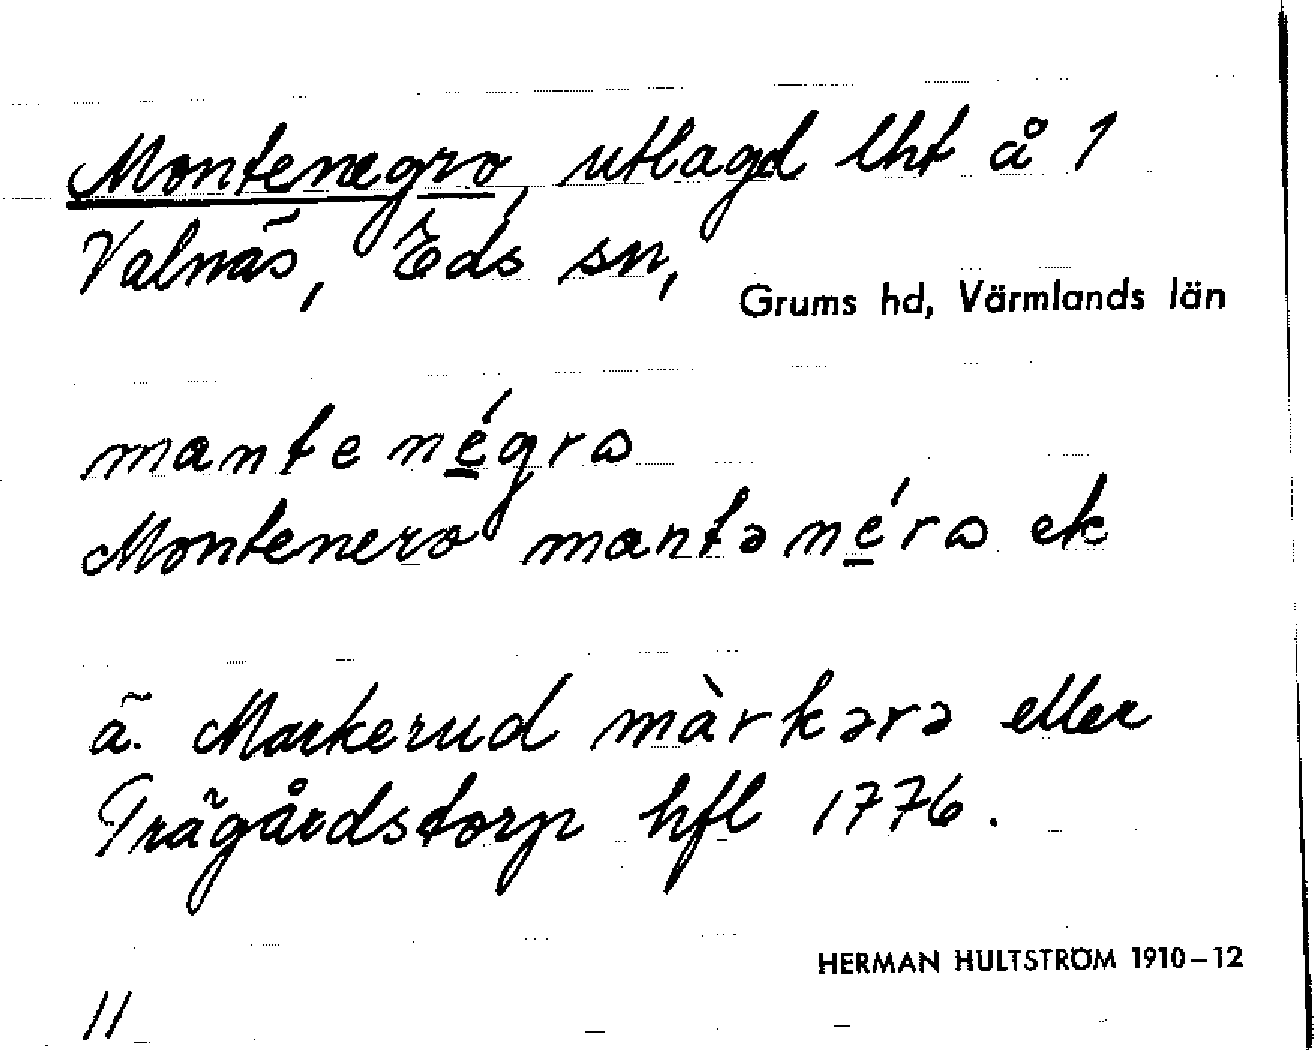 Montenegro, utlagd lht å 1
Valnäs, Eds sn,
Grums hd, Värmlands län
mantenégrω
Montenero mantənérω ek
ä. Markerud màrkərə eller
Trägårdstorp hfl 1776.
HERMAN HULTSTRÖM 1910–12
11